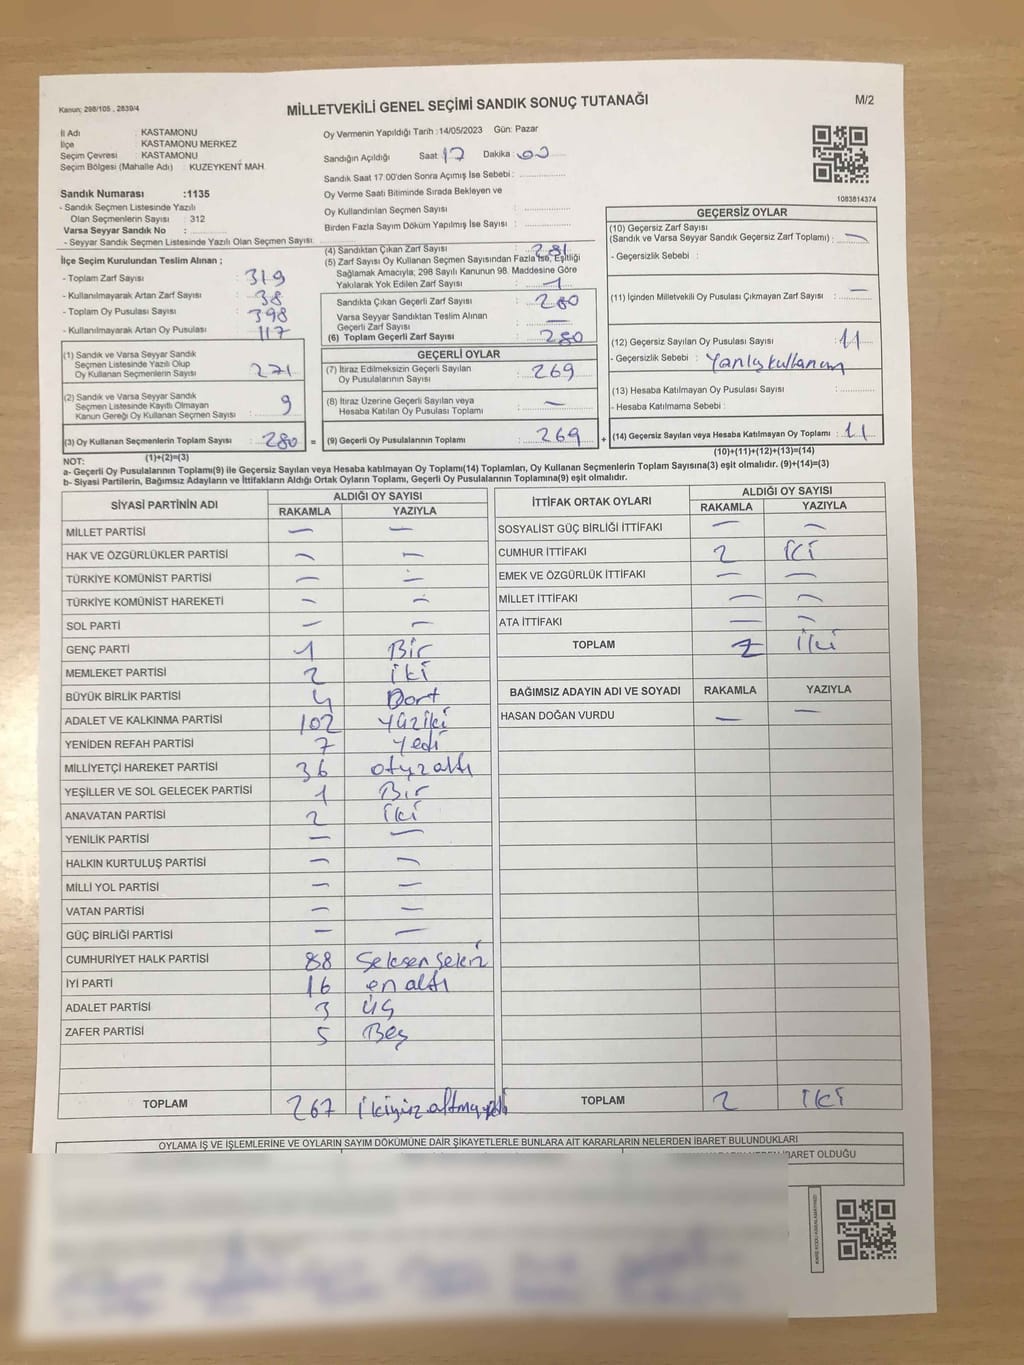 Kanun; 298/105 , 2839/4
MİLLETVEKİLİ GENEL SEÇİMİ SANDIK SONUÇ TUTANAĞI
M/2
İl Adı : KASTAMONU
İlçe : KASTAMONU MERKEZ
Seçim Çevresi : KASTAMONU
Seçim Bölgesi (Mahalle Adı) : KUZEYKENT MAH
Sandık Numarası :1135
- Sandık Seçmen Listesinde Yazılı
Olan Seçmenlerin Sayısı : 312
Varsa Seyyar Sandık No :
- Seyyar Sandık Seçmen Listesinde Yazılı Olan Seçmen Sayısı:
Oy Vermenin Yapıldığı Tarih :14/05/2023 Gün: Pazar
Sandığın Açıldığı Saat 17 Dakika : 00
Sandık Saat 17.00'den Sonra Açımış İse Sebebi :
Oy Verme Saati Bitiminde Sırada Bekleyen ve
Oy Kullandırılan Seçmen Sayısı :
Birden Fazla Sayım Döküm Yapılmış İse Sayısı :
1083814374
İlçe Seçim Kurulundan Teslim Alınan ;
- Toplam Zarf Sayısı : 319
- Kullanılmayarak Artan Zarf Sayısı : 38
- Toplam Oy Pusulası Sayısı : 398
- Kullanılmayarak Artan Oy Pusulası : 117
(1) Sandık ve Varsa Seyyar Sandık
Seçmen Listesinde Yazılı Olup
Oy Kullanan Seçmenlerin Sayısı : 271
(2) Sandık ve Varsa Seyyar Sandık
Seçmen Listesinde Kayıtlı Olmayan
Kanun Gereği Oy Kullanan Seçmen Sayısı : 9
(3) Oy Kullanan Seçmenlerin Toplam Sayısı : 280 =
(1)+(2)=(3)
(4) Sandıktan Çıkan Zarf Sayısı : 281
(5) Zarf Sayısı Oy Kullanan Seçmen Sayısından Fazla ise, Eşitliği
Sağlamak Amacıyla; 298 Sayılı Kanunun 98. Maddesine Göre
Yakılarak Yok Edilen Zarf Sayısı : 1
Sandıkta Çıkan Geçerli Zarf Sayısı : 280
Varsa Seyyar Sandıktan Teslim Alınan
Geçerli Zarf Sayısı : —
(6) Toplam Geçerli Zarf Sayısı : 280
GEÇERLİ OYLAR
(7) İtiraz Edilmeksizin Geçerli Sayılan
Oy Pusulalarının Sayısı : 269
(8) İtiraz Üzerine Geçerli Sayılan veya
Hesaba Katılan Oy Pusulası Toplamı : —
(9) Geçerli Oy Pusulalarının Toplamı : 269 +
GEÇERSİZ OYLAR
(10) Geçersiz Zarf Sayısı
(Sandık ve Varsa Seyyar Sandık Geçersiz Zarf Toplamı) : —
- Geçersizlik Sebebi :
(11) İçinden Milletvekili Oy Pusulası Çıkmayan Zarf Sayısı : —
(12) Geçersiz Sayılan Oy Pusulası Sayısı : 11
- Geçersizlik Sebebi : Yanlış kullanım
(13) Hesaba Katılmayan Oy Pusulası Sayısı :
- Hesaba Katılmama Sebebi :
(14) Geçersiz Sayılan veya Hesaba Katılmayan Oy Toplamı : 11
(10)+(11)+(12)+(13)=(14)
NOT:
a- Geçerli Oy Pusulalarının Toplamı(9) ile Geçersiz Sayılan veya Hesaba katılmayan Oy Toplamı(14) Toplamları, Oy Kullanan Seçmenlerin Toplam Sayısına(3) eşit olmalıdır. (9)+(14)=(3)
b- Siyasi Partilerin, Bağımsız Adayların ve İttifakların Aldığı Ortak Oyların Toplamı, Geçerli Oy Pusulalarının Toplamına(9) eşit olmalıdır.
SİYASİ PARTİNİN ADI ALDIĞI OY SAYISI
RAKAMLA YAZIYLA
MİLLET PARTİSİ — —
HAK VE ÖZGÜRLÜKLER PARTİSİ — —
TÜRKİYE KOMÜNİST PARTİSİ — —
TÜRKİYE KOMÜNİST HAREKETİ — —
SOL PARTİ — —
GENÇ PARTİ 1 Bir
MEMLEKET PARTİSİ 2 iki
BÜYÜK BİRLİK PARTİSİ 4 Dört
ADALET VE KALKINMA PARTİSİ 102 yüziki
YENİDEN REFAH PARTİSİ 7 yedi
MİLLİYETÇİ HAREKET PARTİSİ 36 otuzaltı
YEŞİLLER VE SOL GELECEK PARTİSİ 1 Bir
ANAVATAN PARTİSİ 2 iki
YENİLİK PARTİSİ — —
HALKIN KURTULUŞ PARTİSİ — —
MİLLİ YOL PARTİSİ — —
VATAN PARTİSİ — —
GÜÇ BİRLİĞİ PARTİSİ — —
CUMHURİYET HALK PARTİSİ 88 Seksen sekiz
İYİ PARTİ 16 on altı
ADALET PARTİSİ 3 üç
ZAFER PARTİSİ 5 Beş
TOPLAM 267 ikiyüz altmışyedi
İTTİFAK ORTAK OYLARI ALDIĞI OY SAYISI
RAKAMLA YAZIYLA
SOSYALİST GÜÇ BİRLİĞİ İTTİFAKI — —
CUMHUR İTTİFAKI 2 iki
EMEK VE ÖZGÜRLÜK İTTİFAKI — —
MİLLET İTTİFAKI — —
ATA İTTİFAKI — —
TOPLAM 2 iki
BAĞIMSIZ ADAYIN ADI VE SOYADI RAKAMLA YAZIYLA
HASAN DOĞAN VURDU — —
TOPLAM 2 iki
OYLAMA İŞ VE İŞLEMLERİNE VE OYLARIN SAYIM DÖKÜMÜNE DAİR ŞİKAYETLERLE BUNLARA AİT KARARLARIN NELERDEN İBARET BULUNDUKLARI
İBARET OLDUĞU